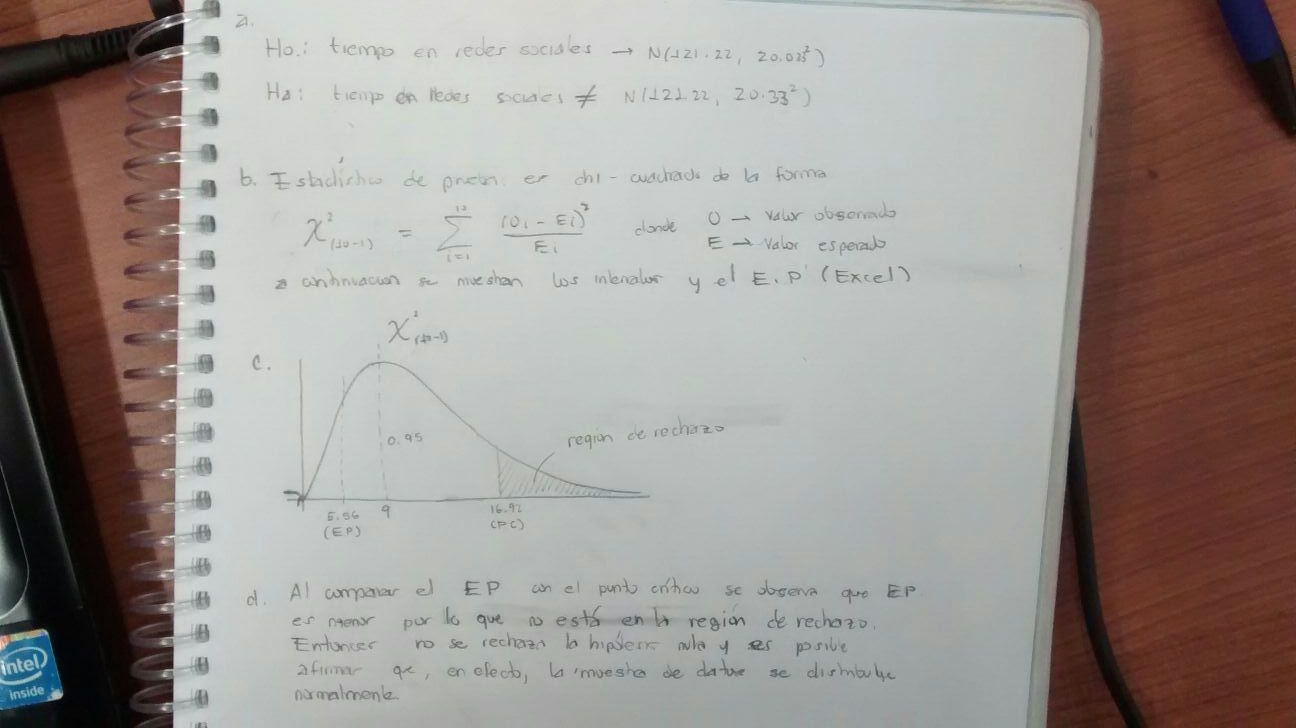 a.
Ho.: tiempo en redes sociales → N(121.22, 20.03²)
Ha: tiempo en redes sociales ≠ N(121.22, 20.33²)
b. Estadístico de prueba: es chi-cuadrado de la forma
χ²(10-1) = Σ i=1 10 (Oi - Ei)² / Ei donde O → valor observado
E → valor esperado
a continuacion se muestran los intervalos y el E.P (Excel)
χ²(10-1)
c.
0.95
región de rechazo
5.56 9 16.92
(EP) (PC)
d. Al comparar el EP con el punto crítico se observa que EP
es menor por lo que no está en la región de rechazo.
Entonces no se rechaza la hipótesis nula y es posible
afirmar que, en efecto, la muestra de datos se distribuye
normalmente.
intel
inside